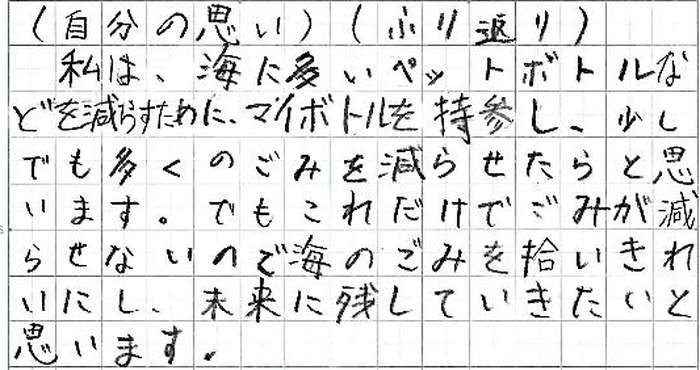 (自分の思い)(ふり返り)
私は、海に多いペットボトルな
どを減らすために、マイボトルを持参し、少し
でも多くのごみを減らせたらと思
います。でもこれだけでごみが減
らせないので海のごみを拾いきれ
いにし、未来に残していきたいと
思います。